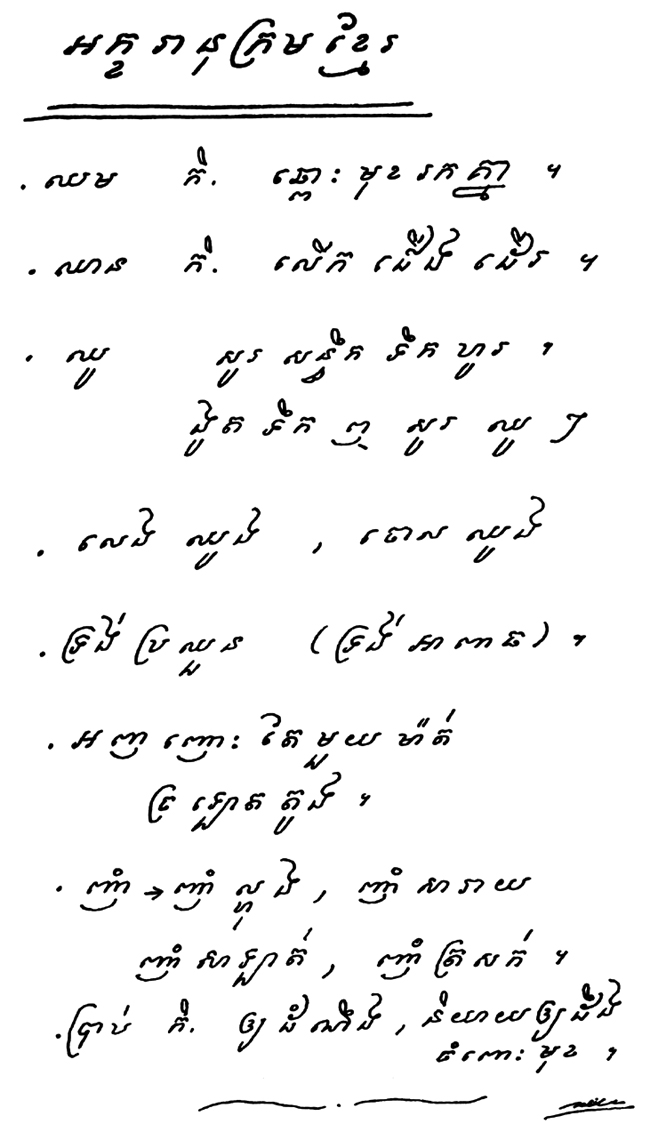 អក្ខរានុក្រមខ្មែរ
. ឈម កិ. ឆ្ពោះ មុខ រក គ្នា ។
. ឈាន កិ. លើក ជើង ដើរ ។
. ឈូ សូរ សន្ធឹក ទឹក ហូរ ។
ងូត ទឹក ឮ សូរ ឈូ ៗ
. លេង ឈូង , ចោល ឈូង
. ទ្រង់ ប្រឈួន (ទ្រង់ អាពាធ) ។
. អញ ញោះ តែ មួយ ម៉ាត់
ទ្រ ឡោត តូង ។
. ញាំ → ញាំ ល្ហុង , ញាំ សារាយ
ញាំ សាឡាត់ , ញាំ ត្រសក់ ។
. ប្រាប់ កិ. ឲ្យ ដំណឹង , និយាយឲ្យដឹង
ចំពោះ មុខ ។